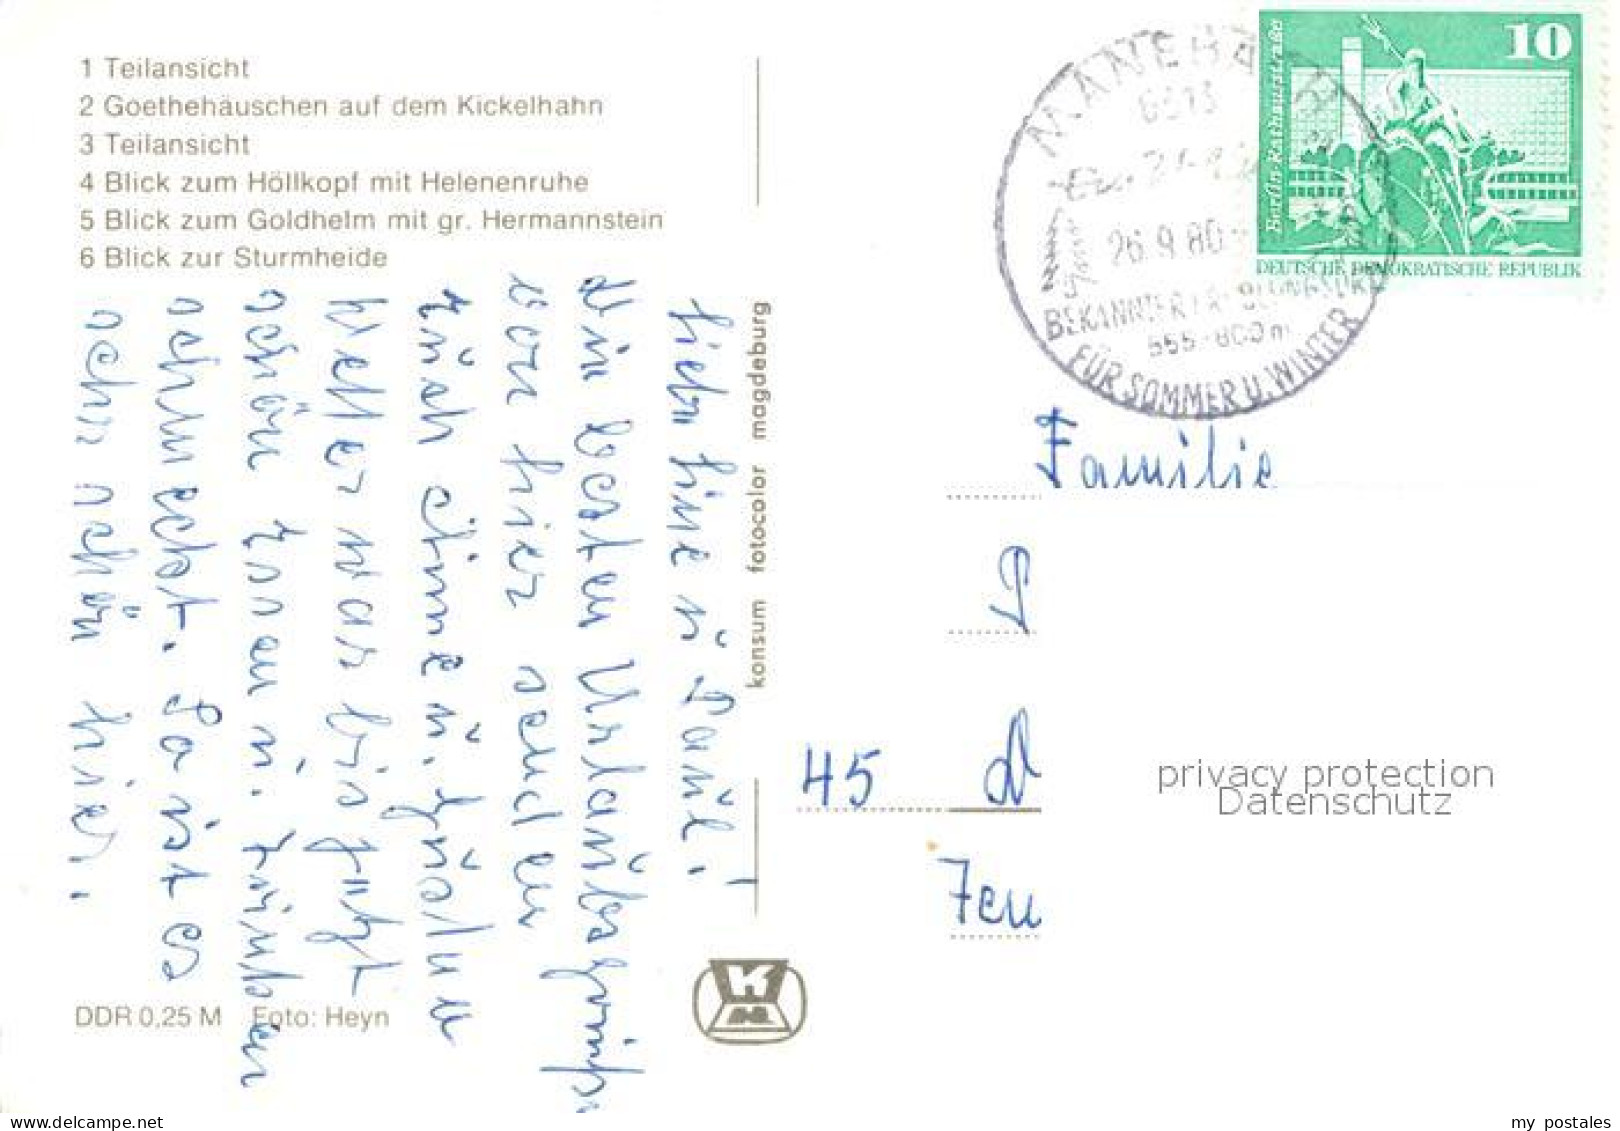 1 Teilansicht
2 Goethehäuschen auf dem Kickelhahn
3 Teilansicht
4 Blick zum Höllkopf mit Helenenruhe
5 Blick zum Goldhelm mit gr. Hermannstein
6 Blick zur Sturmheide
Liebe Line u Paul!
Die besten Urlaubsgrüße
von hier senden
euch Aenne u.
Wetter war bis jetzt
schön Essen u. Trinken
schmeckt. So ist es
sehr schön hier.
konsum fotocolor magdeburg
DDR 0,25 M Foto: Heyn
MANEBACH
26.9.80
BEKANNTER ERHOLUNGSORT
555-800m
FÜR SOMMER U. WINTER
10
Berlin, Rathausstraße
DEUTSCHE DEMOKRATISCHE REPUBLIK
Familie
P
45 D
privacy protection
Datenschutz
my postales